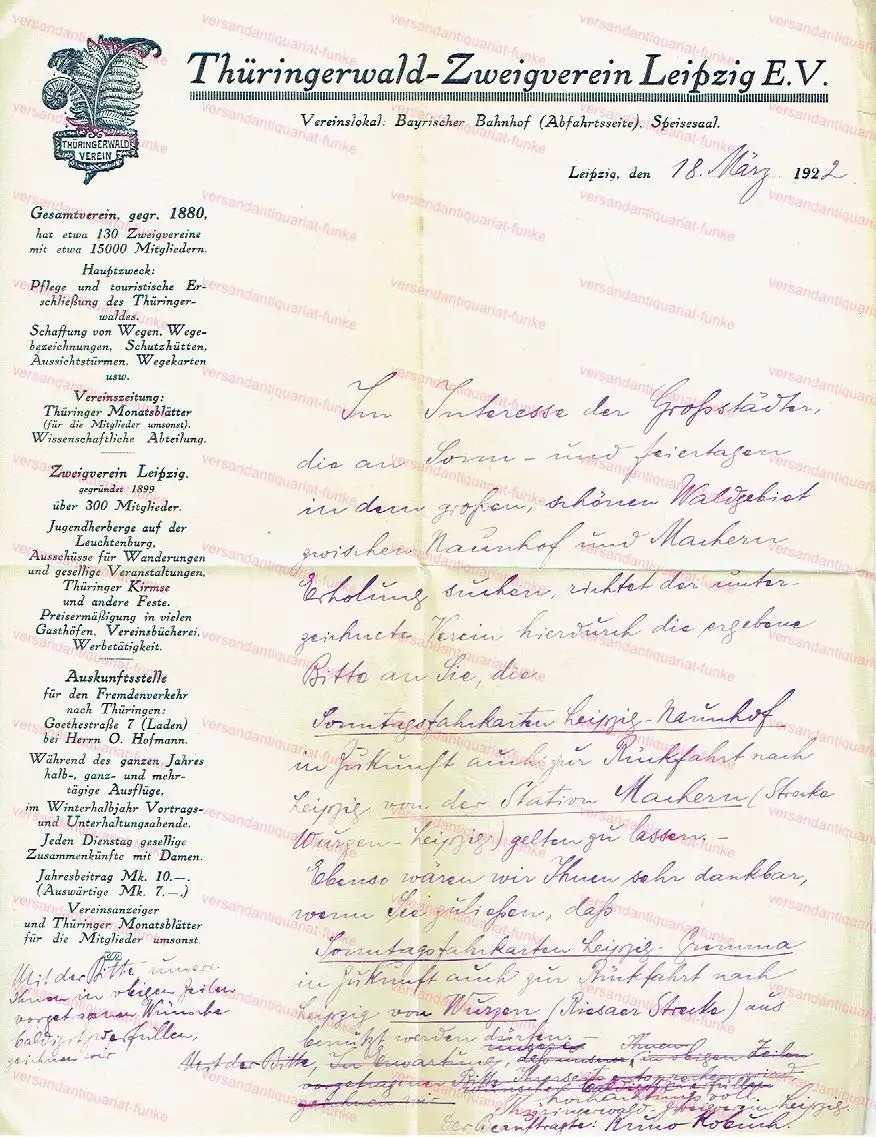 Thüringerwald-Zweigverein Leipzig E.V.
Vereinslokal: Bayrischer Bahnhof (Abfahrtsseite), Speisesaal.
THÜRINGERWALD
VEREIN
Leipzig, den 18. März 1922
Gesamtverein, gegr. 1880,
hat etwa 130 Zweigvereine
mit etwa 15000 Mitgliedern.
Hauptzweck:
Pflege und touristische Er-
schließung des Thüringer-
waldes.
Schaffung von Wegen, Wege-
bezeichnungen, Schutzhütten,
Aussichtstürmen, Wegekarten
usw.
Vereinszeitung:
Thüringer Monatsblätter
(für die Mitglieder umsonst).
Wissenschaftliche Abteilung.
Zweigverein Leipzig,
gegründet 1899
über 300 Mitglieder.
Jugendherberge auf der
Leuchtenburg,
Ausschüsse für Wanderungen
und gesellige Veranstaltungen,
Thüringer Kirmse
und andere Feste.
Preisermäßigung in vielen
Gasthöfen, Vereinsbücherei,
Werbetätigkeit.
Auskunftsstelle
für den Fremdenverkehr
nach Thüringen:
Goethestraße 7 (Laden)
bei Herrn O. Hofmann.
Während des ganzen Jahres
halb-, ganz- und mehr-
tägige Ausflüge,
im Winterhalbjahr Vortrags-
und Unterhaltungsabende.
Jeden Dienstag gesellige
Zusammenkünfte mit Damen.
Jahresbeitrag Mk. 10.—.
(Auswärtige Mk. 7.—.)
Vereinsanzeiger
und Thüringer Monatsblätter
für die Mitglieder umsonst.
Im Interesse der Großstädter,
die an Sonn- und Feiertagen
in dem großen, schönen Waldgebiet
zwischen Naunhof und Machern
Erholung suchen, richtet der unter-
zeichnete Verein hierdurch die ergebene
Bitte an Sie, die
Sonntagsfahrkarten Leipzig-Naunhof
in Zukunft auch zur Rückfahrt nach
Leipzig von der Station Machern (Strecke
Wurzen-Leipzig) gelten zu lassen. –
Ebenso wären wir Ihnen sehr dankbar,
wenn Sie zuließen, daß
Sonntagsfahrkarten Leipzig-Grimma
in Zukunft auch zur Rückfahrt nach
Leipzig von Wurzen (Riesaer Strecke) aus
benutzt werden dürfen. –
Mit der Bitte, unsere
Ihnen in obigen Zeilen
vorgetragenen Wünsche
baldigst zu erfüllen,
zeichnen wir
Mit der Bitte, In Erwartung, daß unsere Ihnen in obigen Zeilen
vorgetragene Bitte
zeichnen wir
hochachtungsvoll.
Thüringerwald-Zweigverein Leipzig.
Der Beauftragte:
versandantiquariat-funke